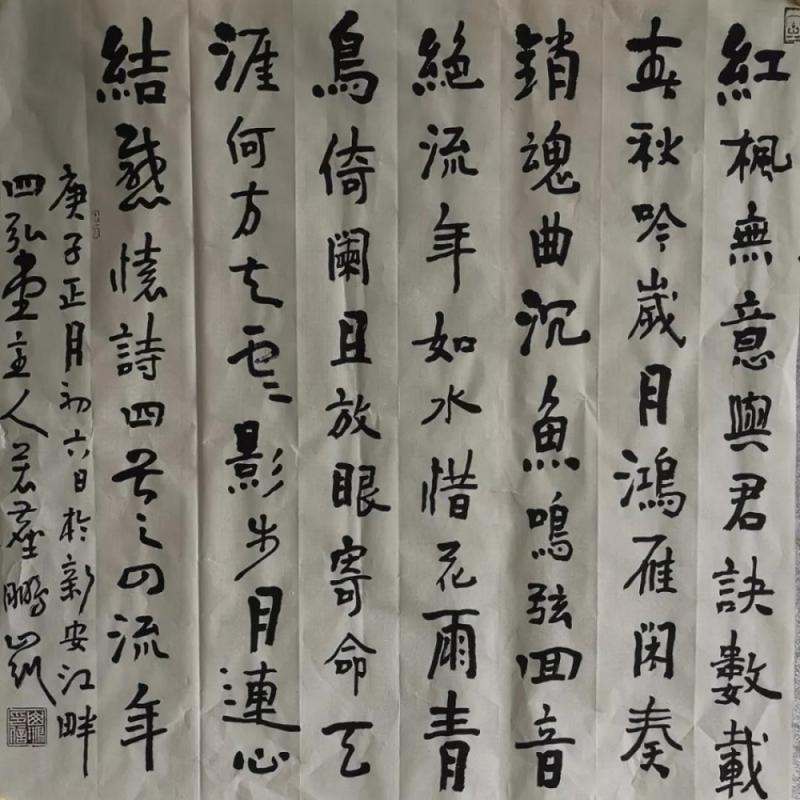 紅楓無意與君訣數載
春秋吟歲月鴻雁閑奏
銷魂曲沉魚鳴弦回音
絕流年如水惜花雨青
鳥倚闌且放眼寄命天
涯何方去雲影步月連心
結感懷詩四首之四流年
庚子正月初六日於新安江畔
四弘堂主人若塵鵬